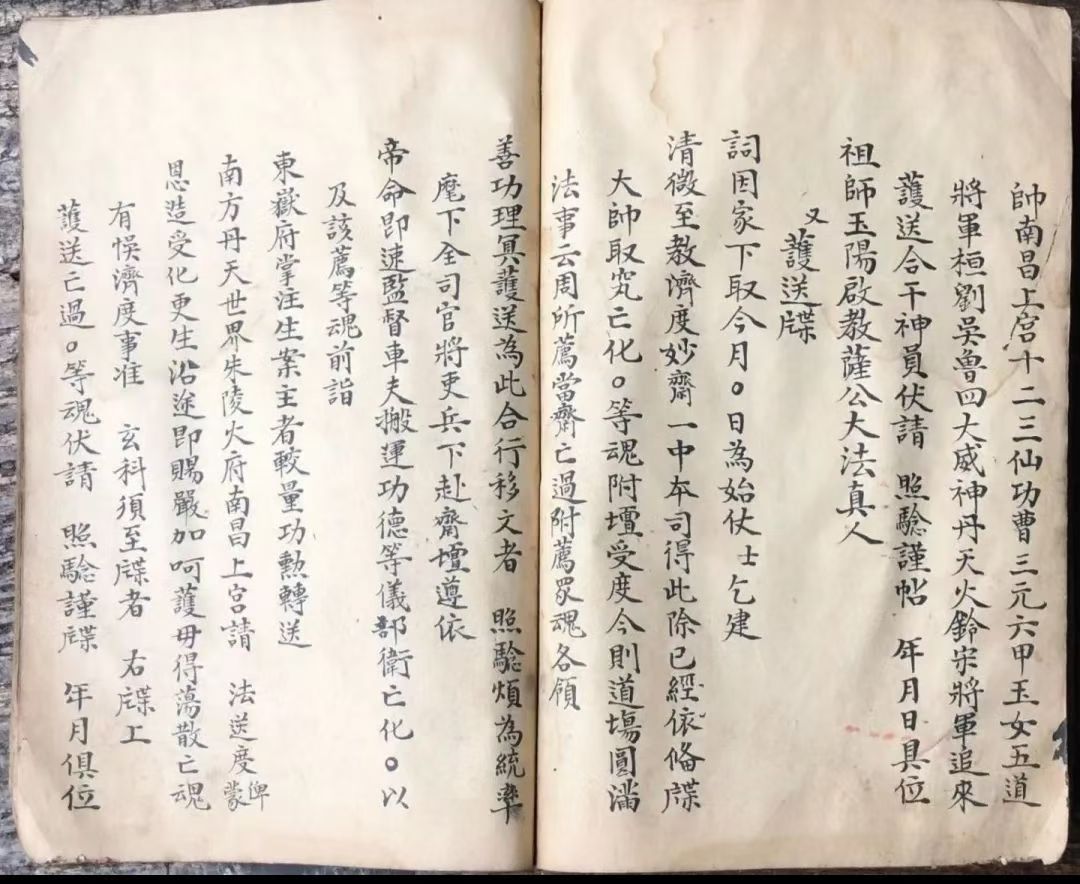 帥南昌上宮十二三仙功曹三元六甲玉女五道
將軍桓劉吳魯四大威神丹天火鈴宋將軍追來
護送合干神員伏請　照驗謹帖　年月日具位
祖師玉陽啟教薩公大法真人
又護送牒
詞因家下取今月〇日為始仗士乞建
清微至教濟度妙齋一中本司得此除已經依俻牒
大帥取究亡化〇等魂附壇受度今則道塲圓滿
法事云周所薦當齋亡過附薦眾魂各領
善功理冥護送為此合行移文者　照驗煩為統率
麾下全司官將吏兵下赴齋壇遵依
帝命即速監督車夫搬運功德等儀部衛亡化〇以
及該薦等魂前詣
東嶽府掌注生案主者較量功勳轉送
南方丹天世界朱陵火府南昌上宮請　法送度俾蒙
恩造受化更生沿途即賜嚴加呵護毋得蕩散亡魂
有悞濟度事准　玄科須至牒者　右牒上
護送亡過〇等魂伏請　照驗謹牒　年月俱位